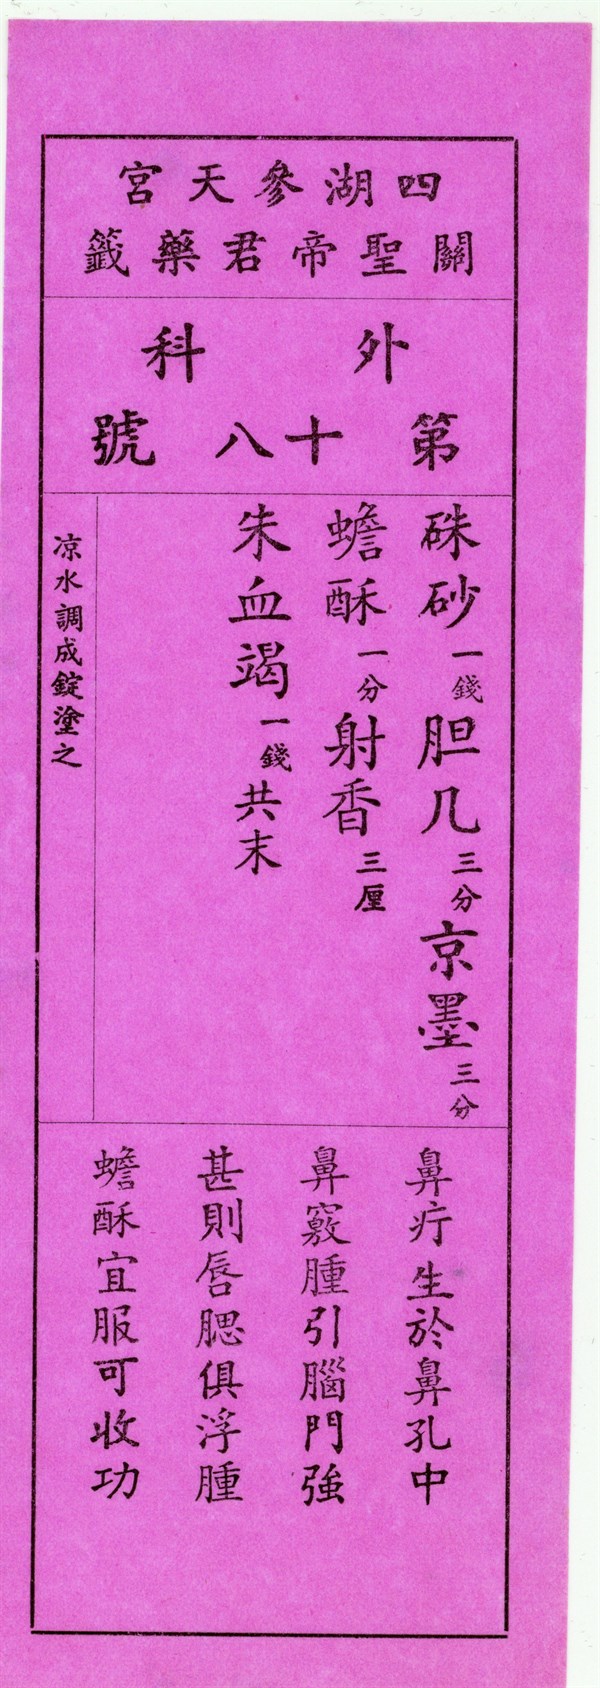 四湖參天宮
關聖帝君藥籤
外科
第十八號
硃砂一錢胆几三分京墨三分
蟾酥一分射香三厘
朱血竭一錢共末
凉水調成錠塗之
鼻疔生於鼻孔中
鼻竅腫引腦門強
甚則唇腮俱浮腫
蟾酥宜服可收功